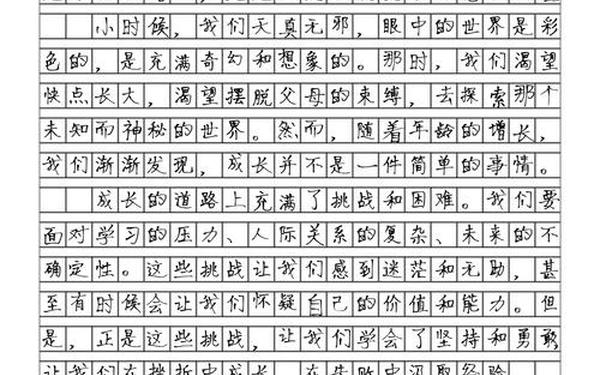 小时候，我们天真无邪，眼中的世界是彩
色的，是充满奇幻和想象的。那时，我们渴望
快点长大，渴望摆脱父母的束缚，去探索那个
未知而神秘的世界。然而，随着年龄的增长，
我们渐渐发现，成长并不是一件简单的事情。
成长的道路上充满了挑战和困难。我们要
面对学习的压力、人际关系的复杂、未来的不
确定性。这些挑战让我们感到迷茫和无助，甚
至有时候会让我们怀疑自己的价值和能力。但
是，正是这些挑战，让我们学会了坚持和勇敢
让我们在挫折中成长，在失败中汲取经验